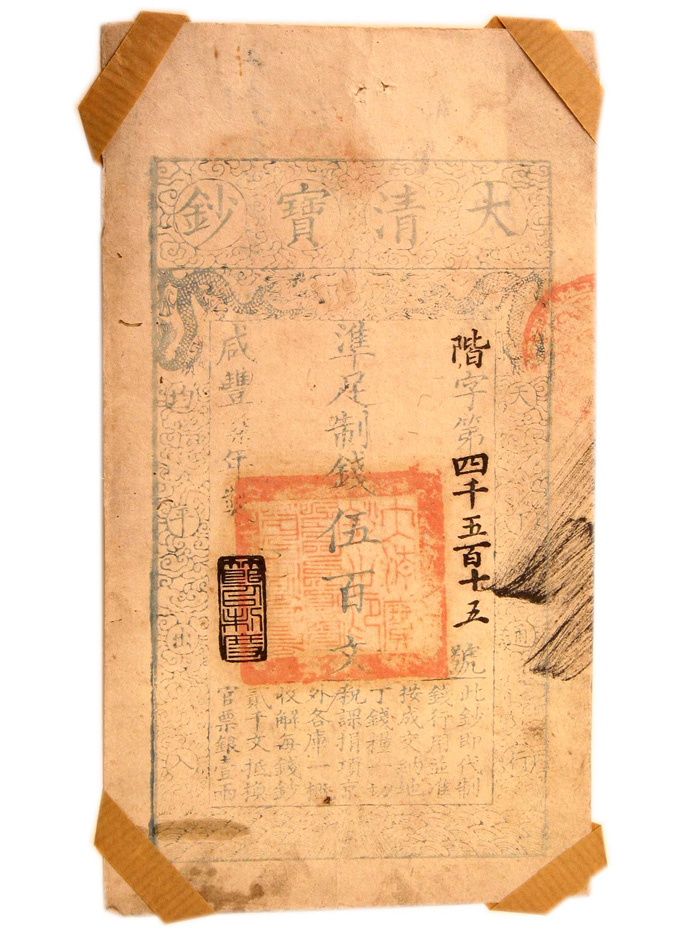 大清寶鈔
天下通行
階字第四千五百十五號
準足制錢伍百文
咸豐柒年製
均平出入
此鈔即代制
錢行用並准
按成交納地
丁錢糧一切
稅課捐項京
外各庫一概
收解每錢鈔
貳千文抵換
官票銀壹兩